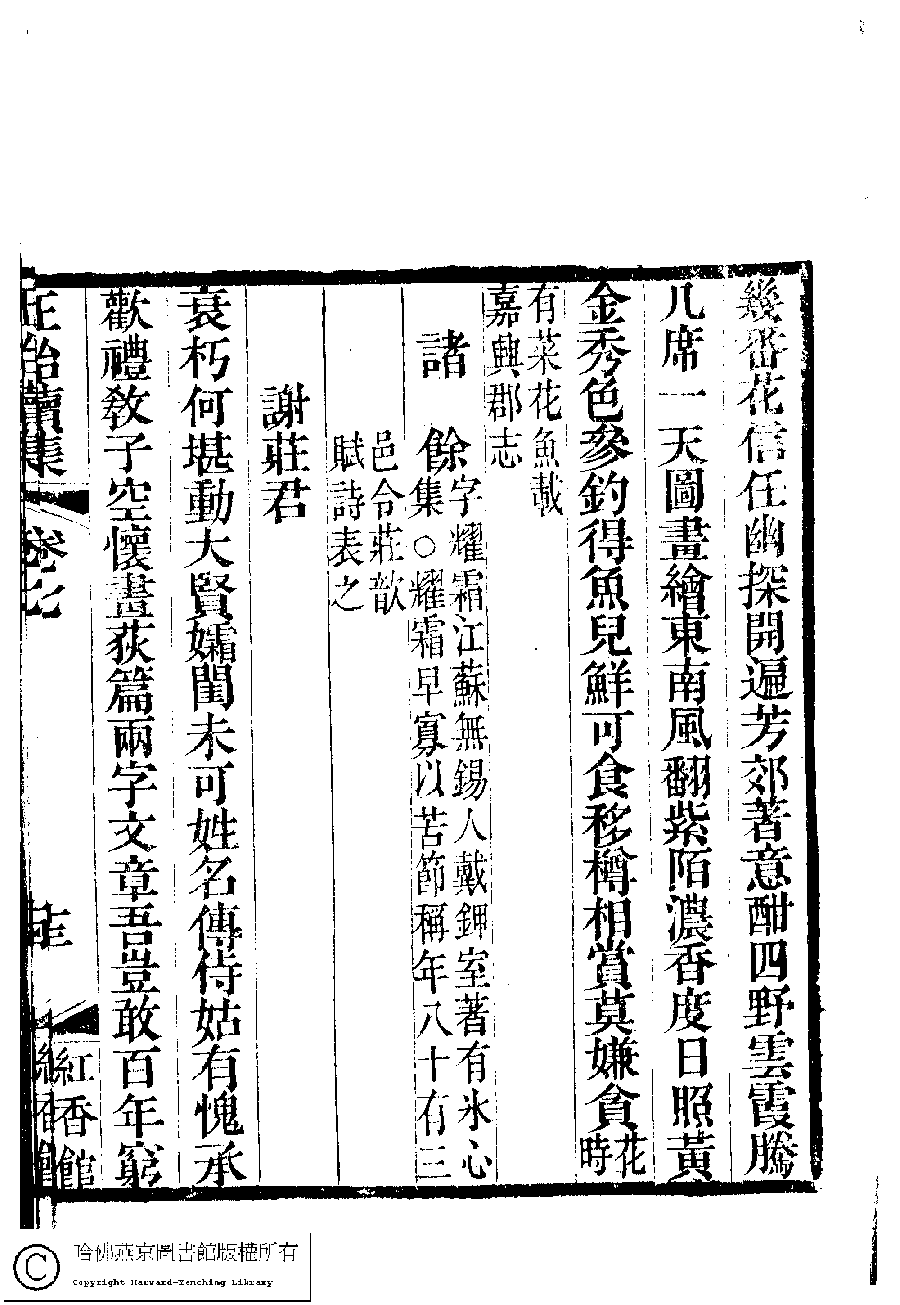 幾番花信任幽探開遍芳郊著意酣四野雲霞騰
几席一天圖畫繪東南風翻紫陌濃香度日照黃
金秀色參釣得魚兒鮮可食移樽相賞莫嫌貪花時
有菜花魚載
嘉興郡志
諸餘字耀霜江蘇無錫人戴鉀室著有氷心
集○耀霜早寡以苦節稱年八十有三
邑令莊歆
賦詩表之
謝莊君
衰朽何堪動大賢孀閨未可姓名傳侍姑有愧承
歡禮教子空懷畫荻篇兩字文章吾豈敢百年窮
正始續集 卷七
紅香館
哈佛燕京圖書館版權所有
Copyright Harvard-Yenching Library